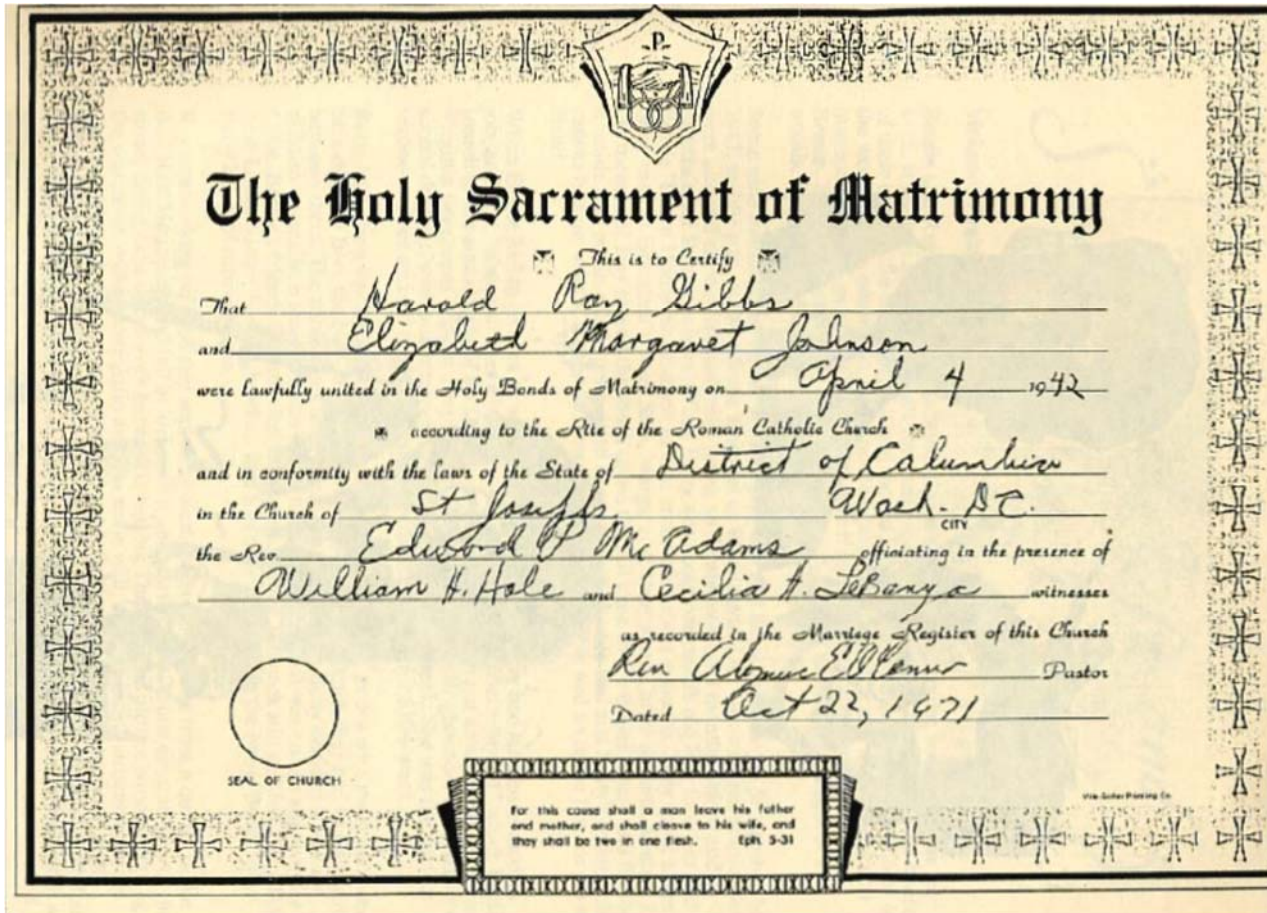 P
The Holy Sacrament of Matrimony
This is to Certify
That Harold Ray Gibbs
and Elizabeth Margaret Johnson
were lawfully united in the Holy Bonds of Matrimony on April 4 1942
according to the Rite of the Roman Catholic Church
and in conformity with the laws of the State of District of Columbia
in the Church of St Josephs Wash. DC.
CITY
the Rev. Edward P McAdams officiating in the presence of
William H. Hale and Cecilia A. witnesses
as recorded in the Marriage Register of this Church
Rev Pastor
Dated Oct 22, 1971
SEAL OF CHURCH
For this cause shall a man leave his father
and mother, and shall cleave to his wife, and
they shall be two in one flesh. Eph. 5-31
Printing Co.